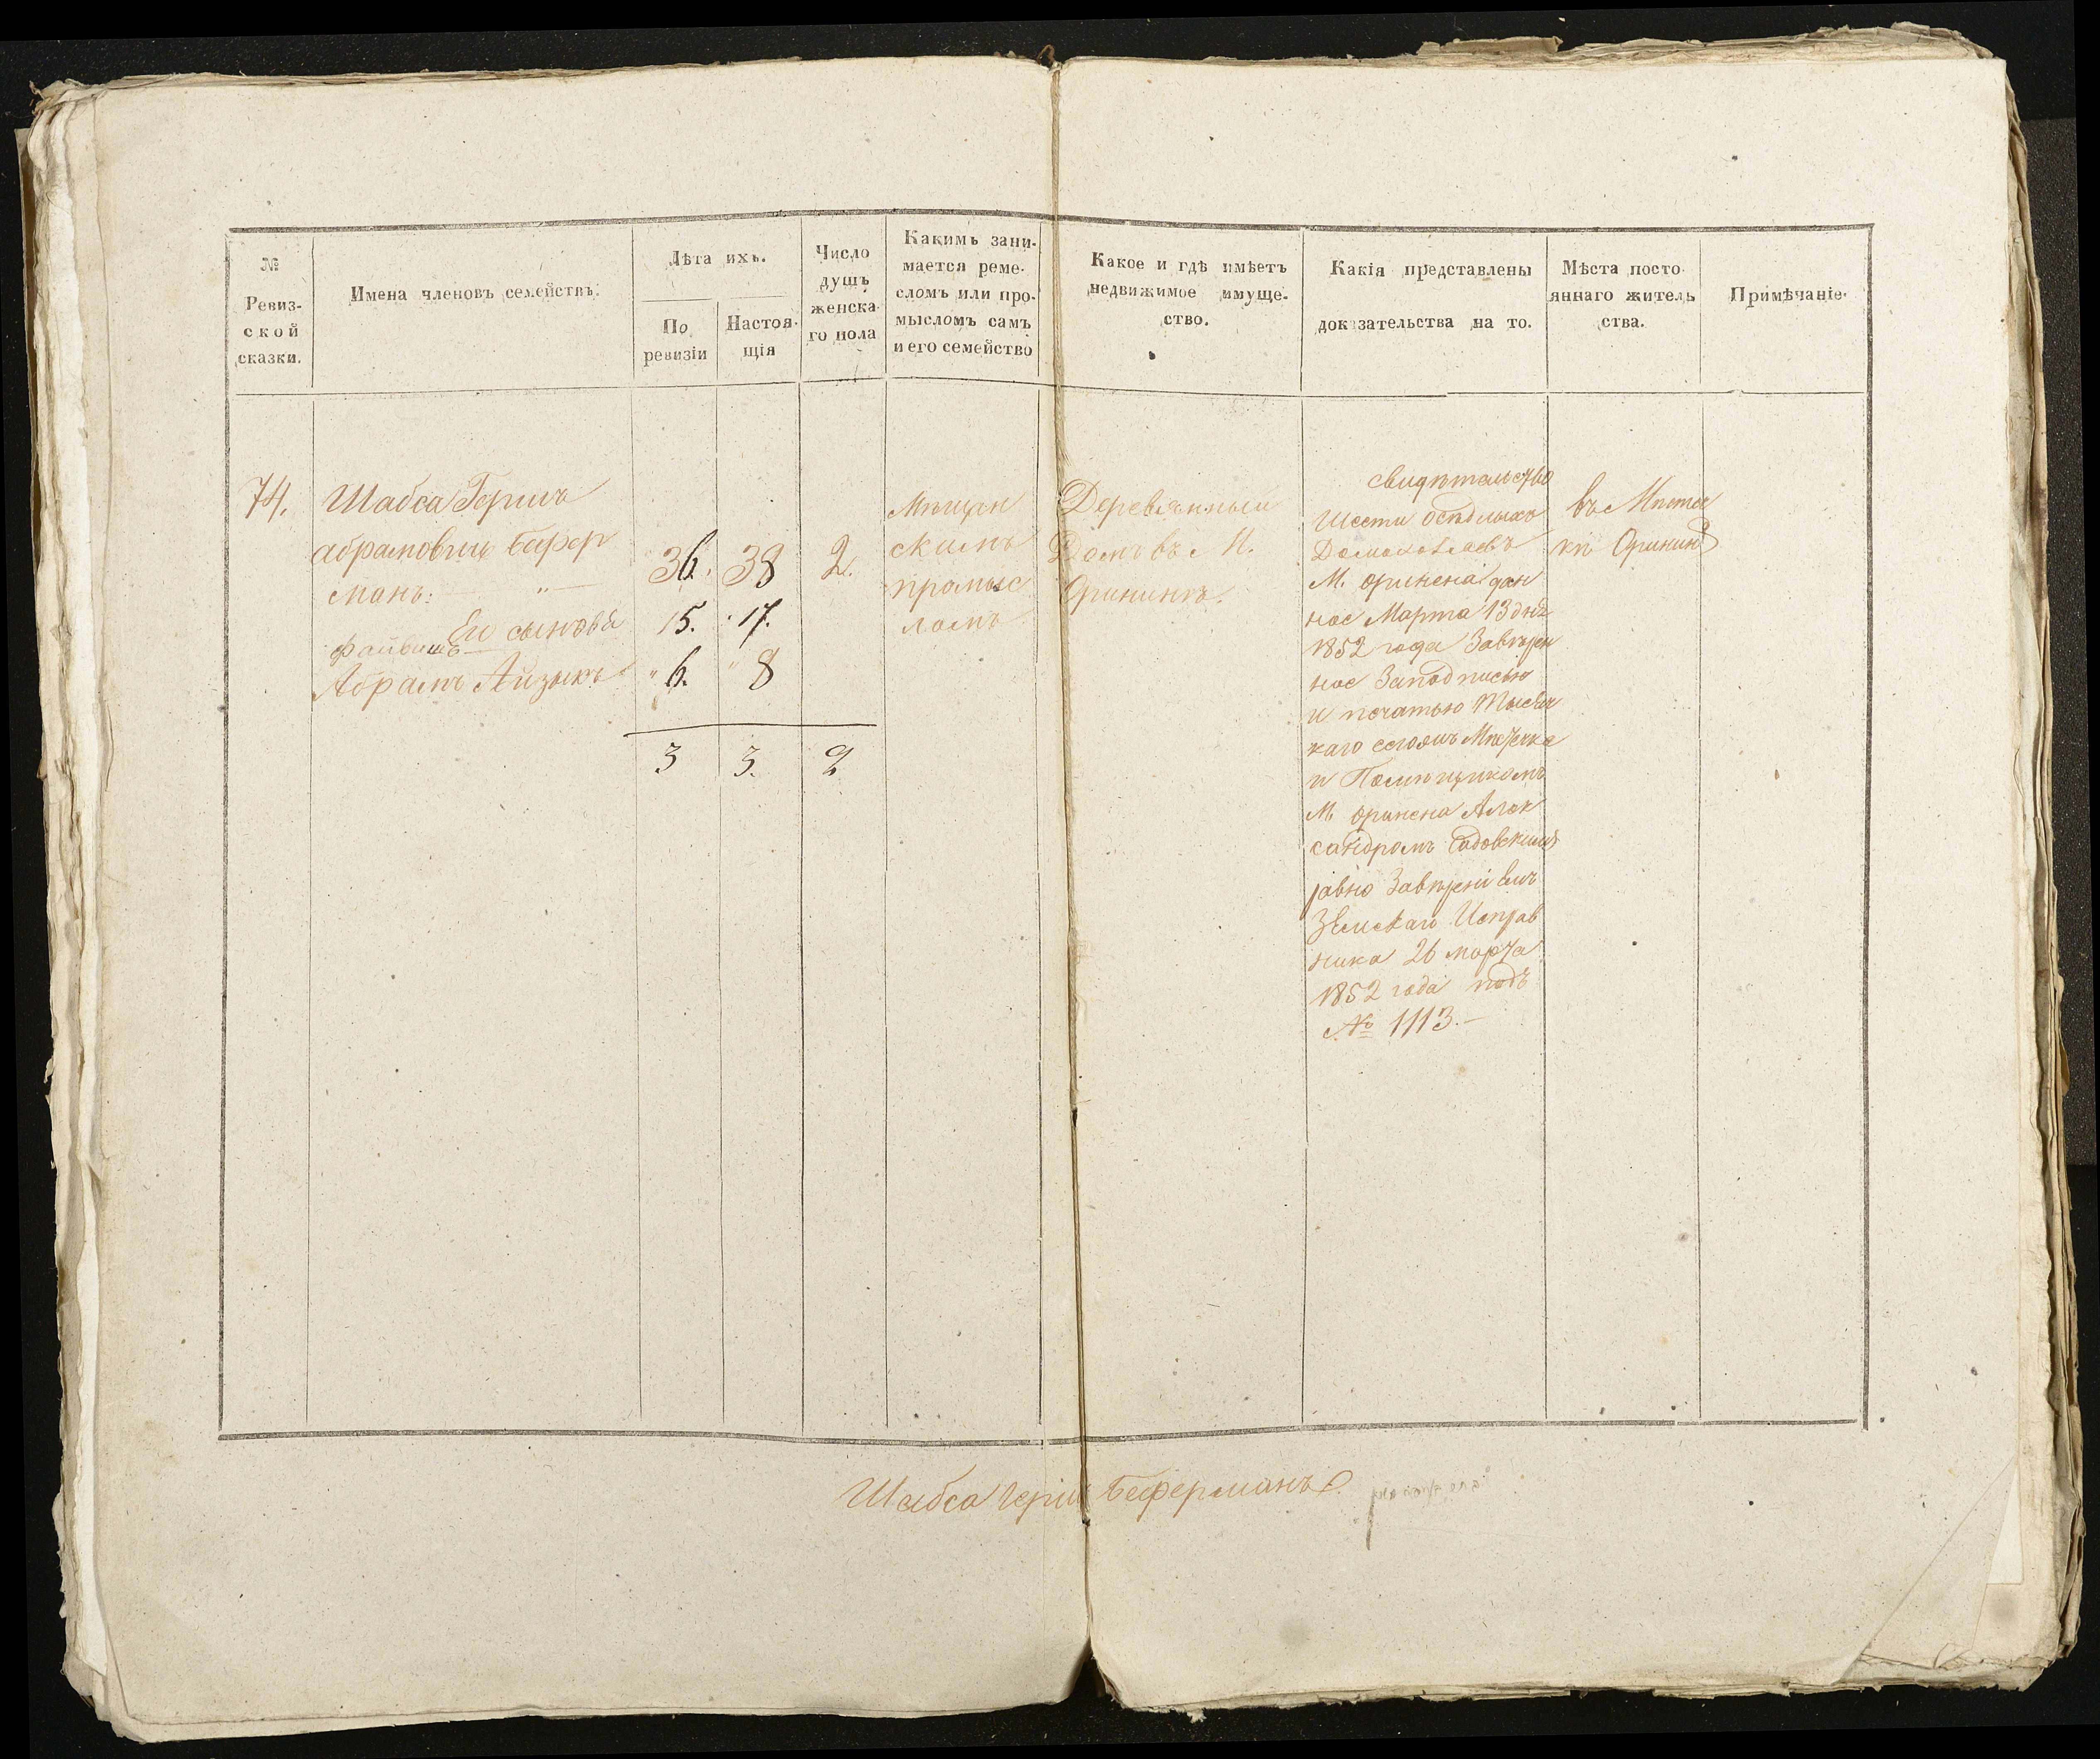 №
Ревиз-
ской
сказки.
Имена членовъ семействъ.
Лѣта ихъ.
По
ревизіи
Настоя-
щія
Число
душъ
женска-
го пола
Какимъ зани-
мается реме-
сломъ или про-
мысломъ самъ
и его семейство
Какое и гдѣ имѣетъ
недвижимое имуще-
ство.
Какія представлены
доказательства на то.
Мѣста посто-
яннаго житель
ства.
Примѣчаніе.
74.
Шабса Гершъ
Абрамовичь Бефер
манъ: — " —
Его сыновья
Файвишъ
Абрамъ Айзыкъ
36. 38 2.
15. 17.
" 6. " 8
3 3. 2
Мѣщан
скимъ
промыс
ломъ
Деревянный
Домъ въ М.
Орининѣ.
свидѣтельство
шести осѣдлыхъ
Домохозяевъ
М. Оринена дан
ное Марта 13 дня
1852 года Завѣрен
ное Заподписью
и печатью
каго Мѣстечка
и Помѣщикомъ
М. Оринена Алек
сандромъ Садовскимъ
равно Завѣреніемъ
Земскаго Исправ
ника 26 марта
1852 года подъ
№ 1113. —
въ Мѣстеч
кѣ Орининѣ
Шабса Герш Беферманъ